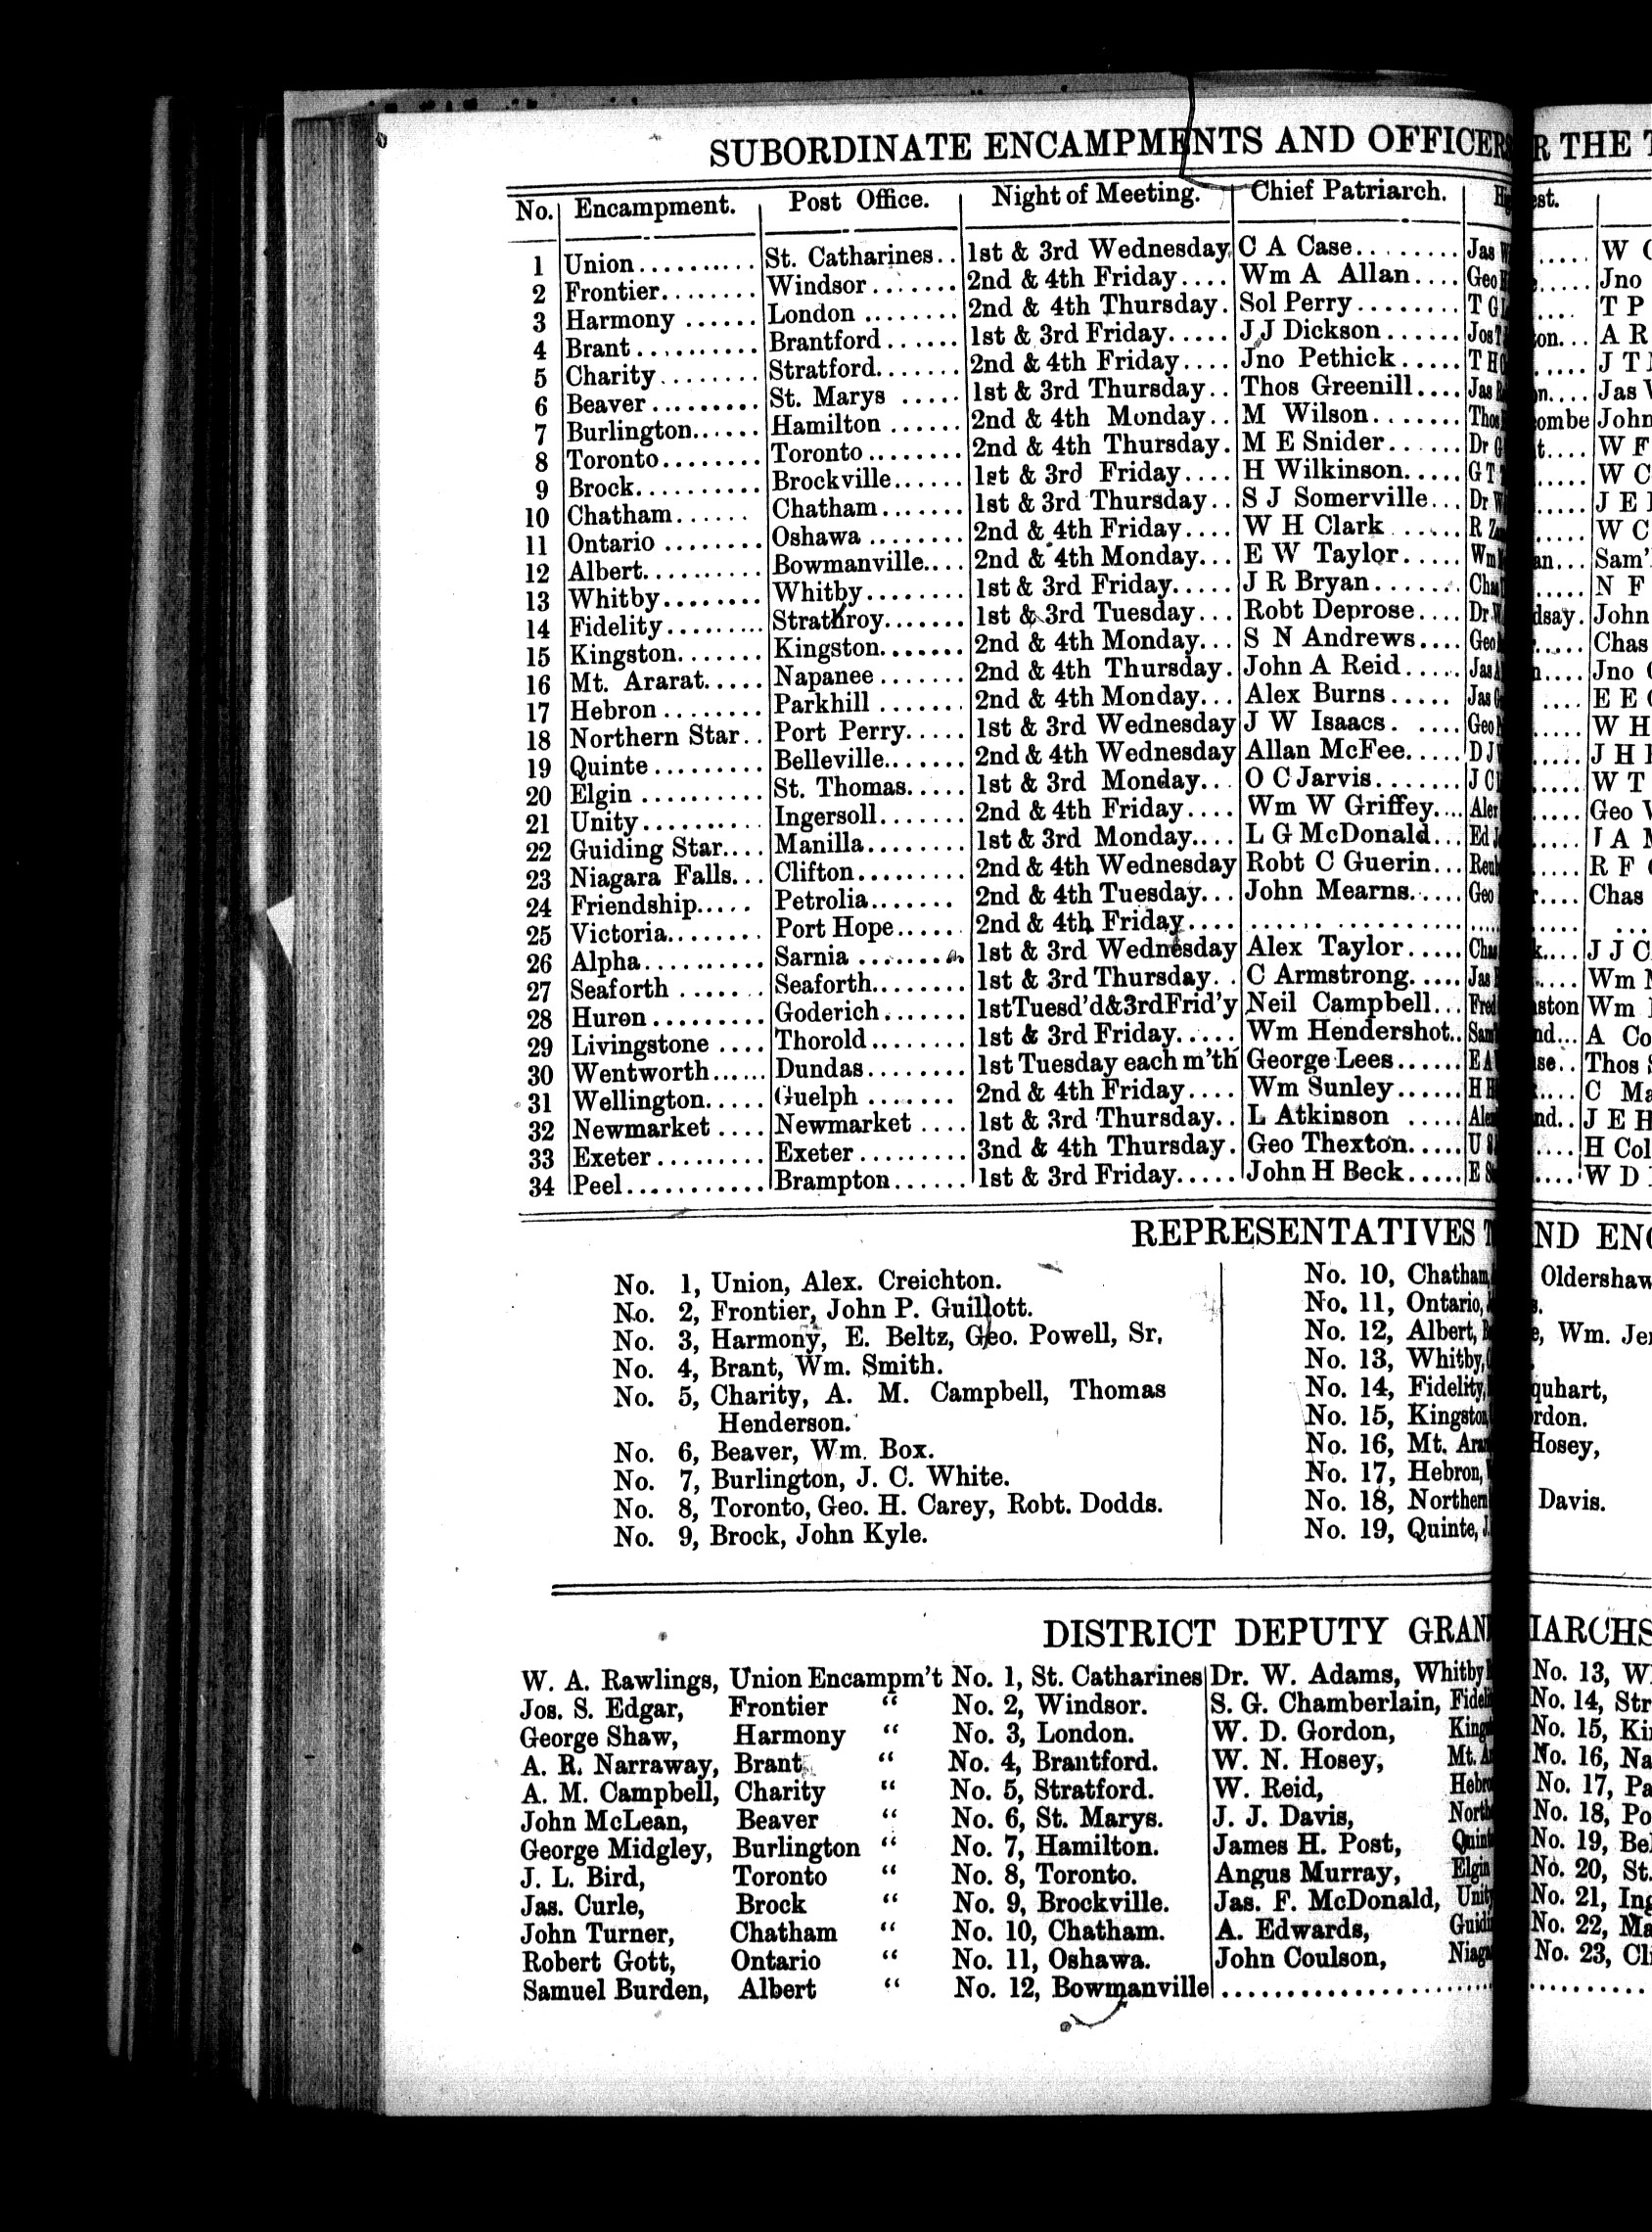 SUBORDINATE ENCAMPMENTS AND OFFICERS R THE
No. Encampment. Post Office. Night of Meeting. Chief Patriarch. est.
1 Union.......... St. Catharines.. 1st & 3rd Wednesday C A Case........ Jas W
2 Frontier........ Windsor....... 2nd & 4th Friday.... Wm A Allan.... Geo Jno
3 Harmony ...... London ........ 2nd & 4th Thursday. Sol Perry......... T G T P
4 Brant.......... Brantford...... 1st & 3rd Friday..... J J Dickson...... Jos on... A R
5 Charity........ Stratford....... 2nd & 4th Friday.... Jno Pethick..... T H J T
6 Beaver......... St. Marys ..... 1st & 3rd Thursday.. Thos Greenill.... Jas n.... Jas
7 Burlington...... Hamilton ...... 2nd & 4th Monday.. M Wilson........ Thos ombe John
8 Toronto........ Toronto........ 2nd & 4th Thursday. M E Snider...... Dr G t.... W F
9 Brock.......... Brockville...... 1st & 3rd Friday.... H Wilkinson..... G T W C
10 Chatham...... Chatham....... 1st & 3rd Thursday.. S J Somerville... Dr W J E
11 Ontario ........ Oshawa ........ 2nd & 4th Friday.... W H Clark ...... R W C
12 Albert.......... Bowmanville.... 2nd & 4th Monday... E W Taylor..... Wm an... Sam'
13 Whitby........ Whitby........ 1st & 3rd Friday..... J R Bryan....... Chas N F
14 Fidelity......... Strathroy....... 1st & 3rd Tuesday... Robt Deprose.... Dr dsay. John
15 Kingston....... Kingston....... 2nd & 4th Monday... S N Andrews.... Geo Chas
16 Mt. Ararat..... Napanee ....... 2nd & 4th Thursday. John A Reid..... Jas Jno
17 Hebron........ Parkhill ....... 2nd & 4th Monday... Alex Burns..... Jas E E
18 Northern Star.. Port Perry..... 1st & 3rd Wednesday J W Isaacs. .... Geo W H
19 Quinte......... Belleville....... 2nd & 4th Wednesday Allan McFee..... D J J H
20 Elgin .......... St. Thomas..... 1st & 3rd Monday... O C Jarvis....... J C W T
21 Unity.......... Ingersoll....... 2nd & 4th Friday.... Wm W Griffey... Geo
22 Guiding Star.... Manilla........ 1st & 3rd Monday.... L G McDonald... Ed J A
23 Niagara Falls... Clifton......... 2nd & 4th Wednesday Robt C Guerin... R F
24 Friendship..... Petrolia....... 2nd & 4th Tuesday... John Mearns..... Geo Chas
25 Victoria........ Port Hope..... 2nd & 4th Friday.... ..............
26 Alpha.......... Sarnia ........ 1st & 3rd Wednesday Alex Taylor..... k.... J J C
27 Seaforth ....... Seaforth........ 1st & 3rd Thursday.. C Armstrong..... Jas Wm
28 Huron......... Goderich....... 1stTuesd'd&3rdFrid'y Neil Campbell... Fred ston Wm
29 Livingstone .... Thorold........ 1st & 3rd Friday..... Wm Hendershot.. nd... A Co
30 Wentworth...... Dundas........ 1st Tuesday each m'th George Lees...... E A se.. Thos
31 Wellington..... Guelph ....... 2nd & 4th Friday.... Wm Sunley...... H C Ma
32 Newmarket .... Newmarket .... 1st & 3rd Thursday.. L Atkinson ..... nd.. J E H
33 Exeter......... Exeter......... 3nd & 4th Thursday. Geo Thexton..... U H Col
34 Peel........... Brampton...... 1st & 3rd Friday..... John H Beck..... E W D
REPRESENTATIVES ND ENC
No. 1, Union, Alex. Creichton.
No. 2, Frontier, John P. Guillott.
No. 3, Harmony, E. Beltz, Geo. Powell, Sr.
No. 4, Brant, Wm. Smith.
No. 5, Charity, A. M. Campbell, Thomas
Henderson.
No. 6, Beaver, Wm. Box.
No. 7, Burlington, J. C. White.
No. 8, Toronto, Geo. H. Carey, Robt. Dodds.
No. 9, Brock, John Kyle.
No. 10, Chatham, Oldershaw
No. 11, Ontario, s.
No. 12, Albert, e, Wm. Je
No. 13, Whitby,
No. 14, Fidelity, quhart,
No. 15, Kingston rdon.
No. 16, Mt. Hosey,
No. 17, Hebron,
No. 18, Northern Davis.
No. 19, Quinte, J.
DISTRICT DEPUTY GRAN IARCHS
W. A. Rawlings, Union Encampm't No. 1, St. Catharines Dr. W. Adams, Whitby No. 13, W
Jos. S. Edgar, Frontier " No. 2, Windsor. S. G. Chamberlain, Fideli No. 14, Str
George Shaw, Harmony " No. 3, London. W. D. Gordon, Kings No. 15, Ki
A. R. Narraway, Brant " No. 4, Brantford. W. N. Hosey, Mt. A No. 16, Na
A. M. Campbell, Charity " No. 5, Stratford. W. Reid, Hebro No. 17, Pa
John McLean, Beaver " No. 6, St. Marys. J. J. Davis, North No. 18, Po
George Midgley, Burlington " No. 7, Hamilton. James H. Post, Quint No. 19, Be
J. L. Bird, Toronto " No. 8, Toronto. Angus Murray, Elgin No. 20, St.
Jas. Curle, Brock " No. 9, Brockville. Jas. F. McDonald, Unity No. 21, Ing
John Turner, Chatham " No. 10, Chatham. A. Edwards, Guidi No. 22, Ma
Robert Gott, Ontario " No. 11, Oshawa. John Coulson, Niaga No. 23, Cli
Samuel Burden, Albert " No. 12, Bowmanville ..............